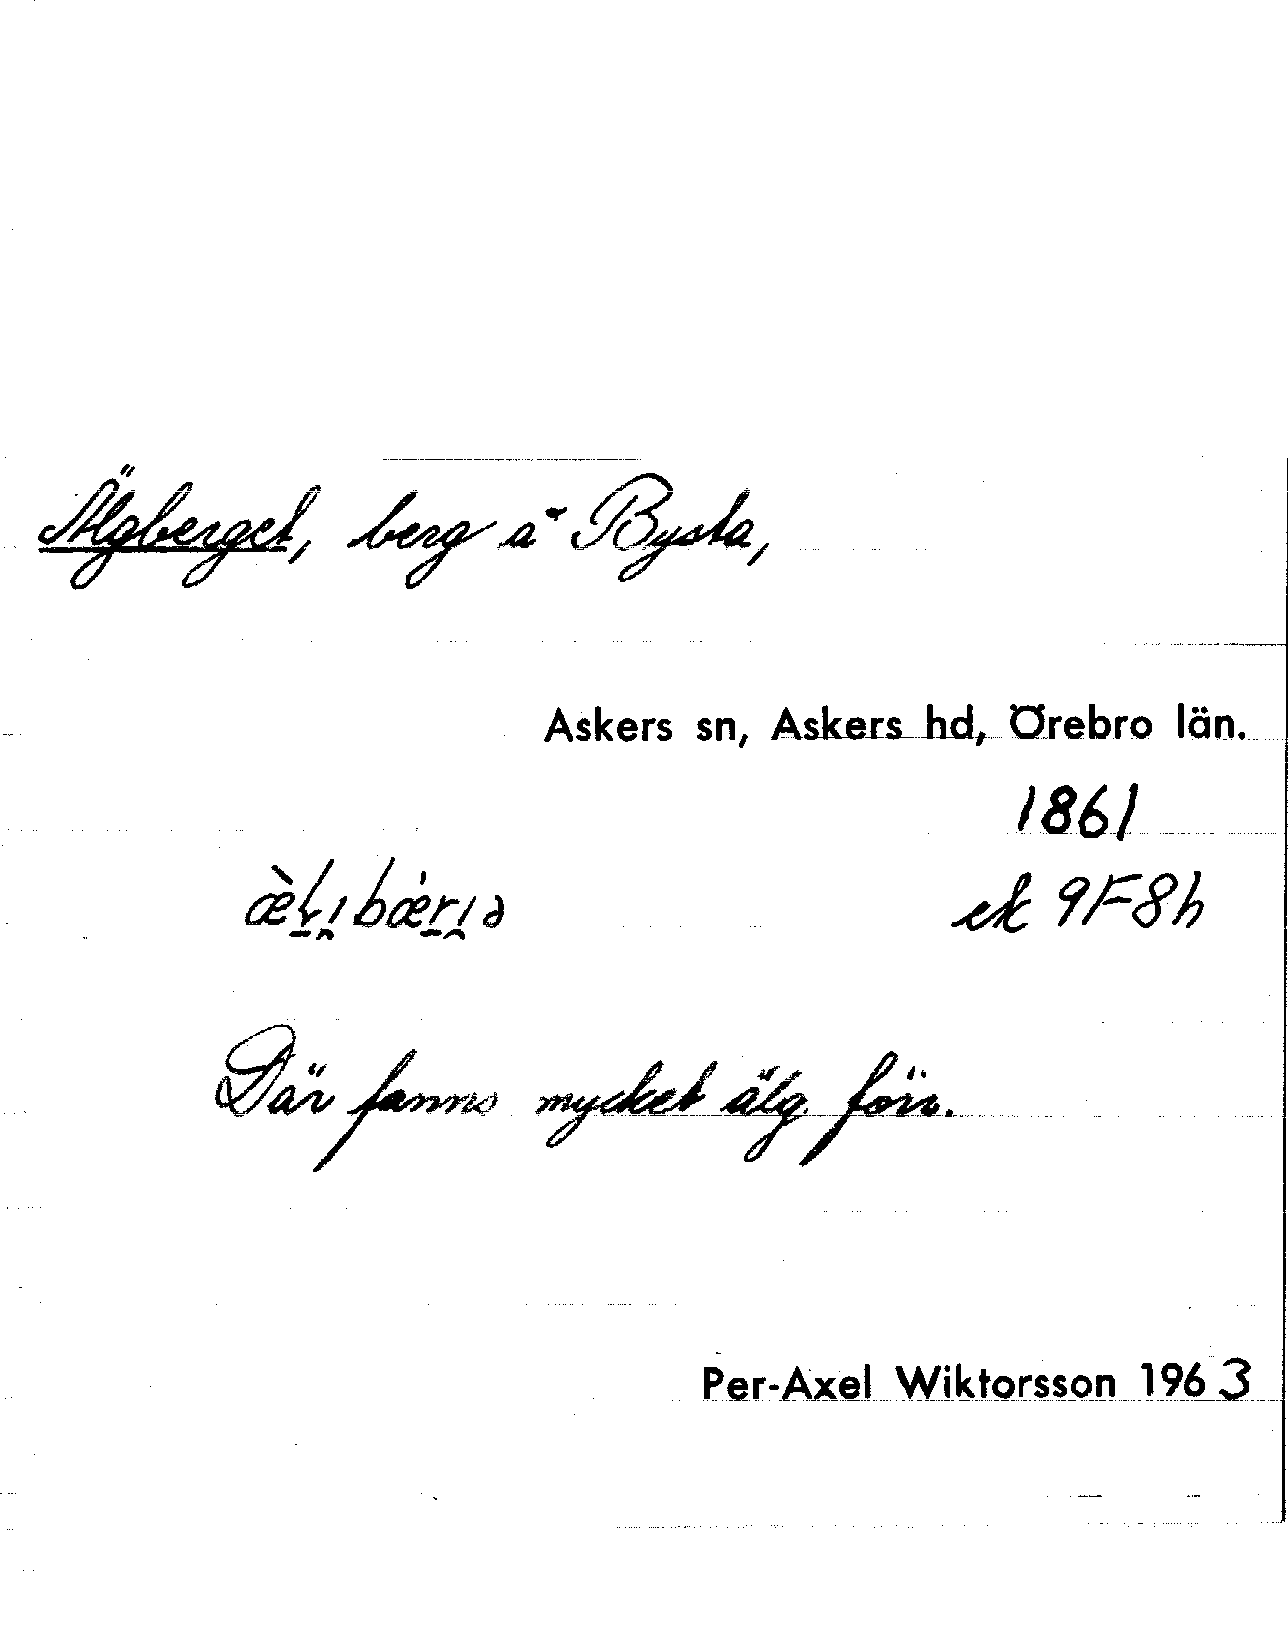 Älgberget, berg å Bysta,
Askers sn, Askers hd, Örebro län.
1861
ek 9F8h
Där fanns mycket älg förr.
Per-Axel Wiktorsson 1963